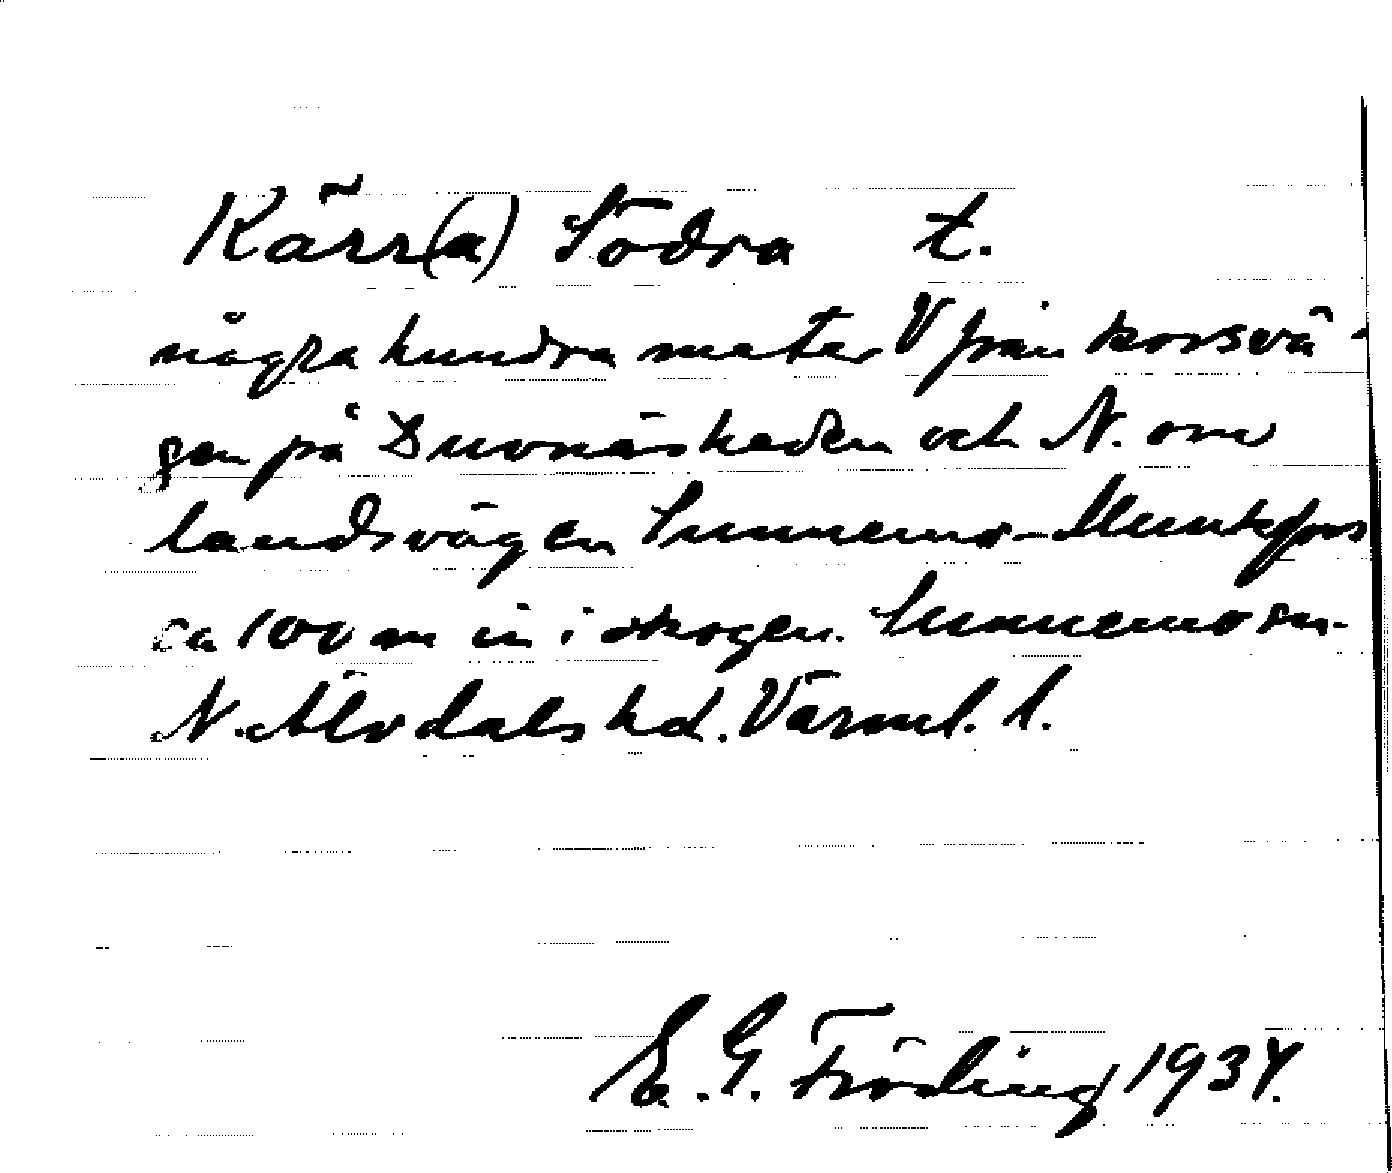 Kärr(a) Södra t.
några hundra meter V från korsvä-
gen på Duvnäsheden och N. om
landsvägen Sunnemo-Munkfors
ca 100 m in i skogen. Sunnemo sn.
N. Älvdals hd. Värml. l.
E. G. Fröding 1934.